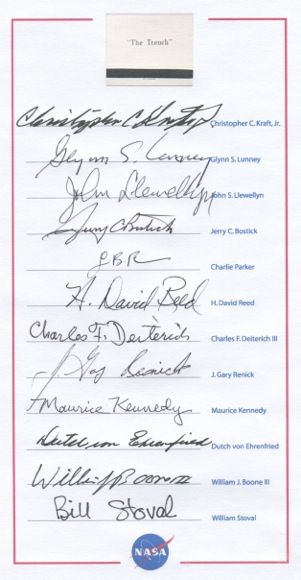 "The Trench"
Christopher C Kraft Jr Christopher C. Kraft, Jr.
Glynn S. Lunney Glynn S. Lunney
John S Llewellyn John S. Llewellyn
Jerry C Bostick Jerry C. Bostick
Charlie Parker
H. David Reed H. David Reed
Charles F. Deiterich Charles F. Deiterich III
J. Gary Renick J. Gary Renick
Maurice Kennedy Maurice Kennedy
Dutch von Ehrenfried Dutch von Ehrenfried
William J Boone III William J. Boone III
Bill Stoval William Stoval
NASA